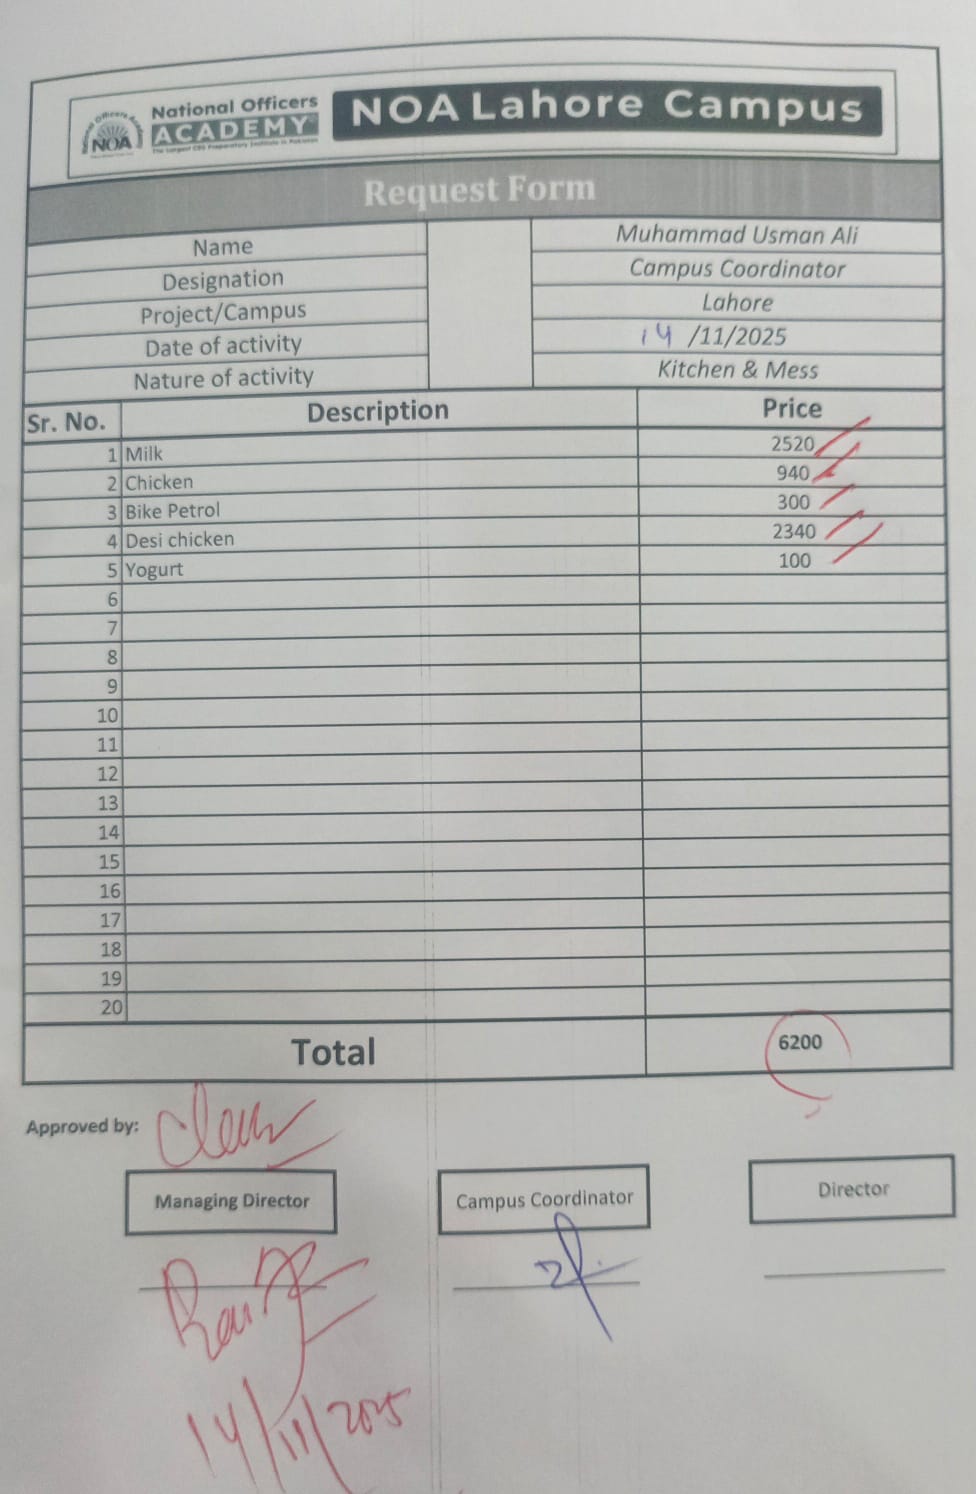 National Officers
ACADEMY
The Largest CSS Preparatory Institute in Pakistan
National Officers Academy
NOA
NOA Lahore Campus
Request Form
Name Muhammad Usman Ali
Designation Campus Coordinator
Project/Campus Lahore
Date of activity 14 /11/2025
Nature of activity Kitchen & Mess
Sr. No. Description Price
1 Milk 2520
2 Chicken 940
3 Bike Petrol 300
4 Desi chicken 2340
5 Yogurt 100
6
7
8
9
10
11
12
13
14
15
16
17
18
19
20
Total 6200
Approved by:
Managing Director Campus Coordinator Director
14/11/2025